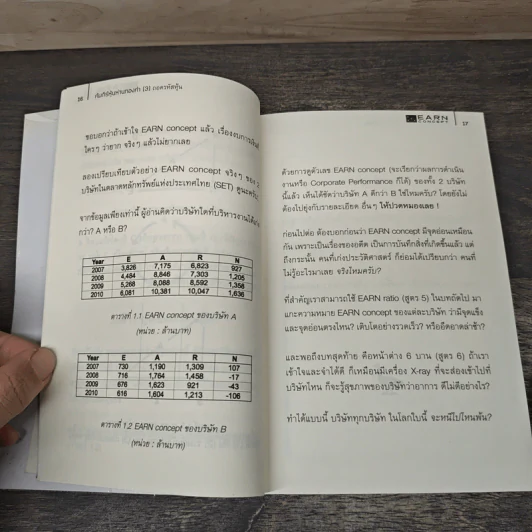 16 คัมภีร์หุ้นห่านทองคำ [3] ถอดรหัสหุ้น
ขอบอกว่าถ้าเข้าใจ EARN concept แล้ว เรื่องงบการเงินที่
ใครๆ ว่ายาก จริงๆ แล้วไม่ยากเลย
ลองเปรียบเทียบตัวอย่าง EARN concept จริงๆ ของ 2
บริษัทในตลาดหลักทรัพย์แห่งประเทศไทย (SET) ดูนะครับ
จากข้อมูลเพียงเท่านี้ ผู้อ่านคิดว่าบริษัทใดที่บริหารงานได้ดี
กว่า? A หรือ B?
Year E A R N
2007 3,826 7,175 6,823 927
2008 4,484 8,846 7,303 1,205
2009 5,268 8,088 8,592 1,358
2010 6,081 10,381 10,047 1,636
ตารางที่ 1.1 EARN concept ของบริษัท A
(หน่วย : ล้านบาท)
Year E A R N
2007 730 1,190 1,309 107
2008 716 1,764 1,458 -17
2009 676 1,623 921 -43
2010 616 1,604 1,213 -106
ตารางที่ 1.2 EARN concept ของบริษัท B
(หน่วย : ล้านบาท)
EARN CONCEPT 17
ด้วยการดูตัวเลข EARN concept (จะเรียกว่าผลการดำเนิน
งานหรือ Corporate Performance ก็ได้) ของทั้ง 2 บริษัท
นี้แล้ว เห็นได้ชัดว่าบริษัท A ดีกว่า B ใช่ไหมครับ? โดยยังไม่
ต้องไปยุ่งกับรายละเอียด อื่นๆ ให้ปวดหมองเลย !
ก่อนไปต่อ ต้องบอกก่อนว่า EARN concept มีจุดอ่อนเหมือน
กัน เพราะเป็นเรื่องของอดีต เป็นการบันทึกสิ่งที่เกิดขึ้นแล้ว แต่
ถึงกระนั้น คนที่เก่งประวัติศาสตร์ ก็ย่อมได้เปรียบกว่า คนที่
ไม่รู้อะไรมาเลย จริงไหมครับ?
ที่สำคัญเราสามารถใช้ EARN ratio (สูตร 5) ในบทถัดไป มา
แกะความหมาย EARN concept ของแต่ละบริษัท ว่ามีจุดแข็ง
และจุดอ่อนตรงไหน? เติบโตอย่างรวดเร็ว? หรืออืดอาดล่าช้า?
และพอถึงบทสุดท้าย คือหน้าต่าง 6 บาน (สูตร 6) ถ้าเรา
เข้าใจและจำได้ดี ก็เหมือนมีเครื่อง X-ray ที่จะส่องเข้าไปที่
บริษัทไหน ก็จะรู้สุขภาพของบริษัทว่าอาการ ดีไม่ดีอย่างไร?
ทำได้แบบนี้ บริษัททุกบริษัท ในโลกใบนี้ จะหนีไปไหนพ้น?